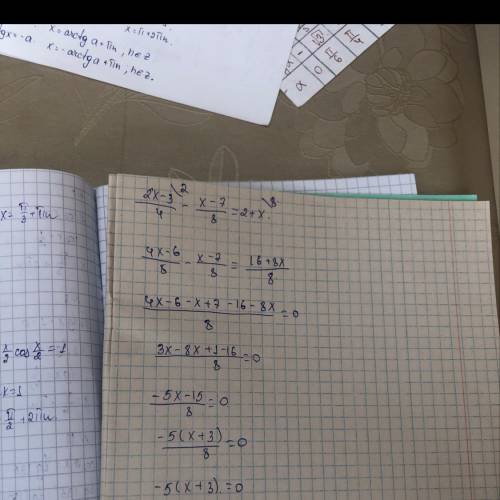 gx=-a. x=arctg a+πn, n∈z
x=π+2πn.
x=-arctg a+πn, n∈z.
α 0 π/6 π/4
x= π/3 +πn
x/2 cos x/2 = 1
x=1
π/2 +2πn
(2x-3)/4 \2 - (x-7)/8 = 2+x \8
(4x-6)/8 - (x-7)/8 = (16+8x)/8
(4x-6-x+7-16-8x)/8 =0
(3x-8x+1-16)/8 =0
(-5x-15)/8 =0
(-5(x+3))/8 =0
-5(x+3)=0